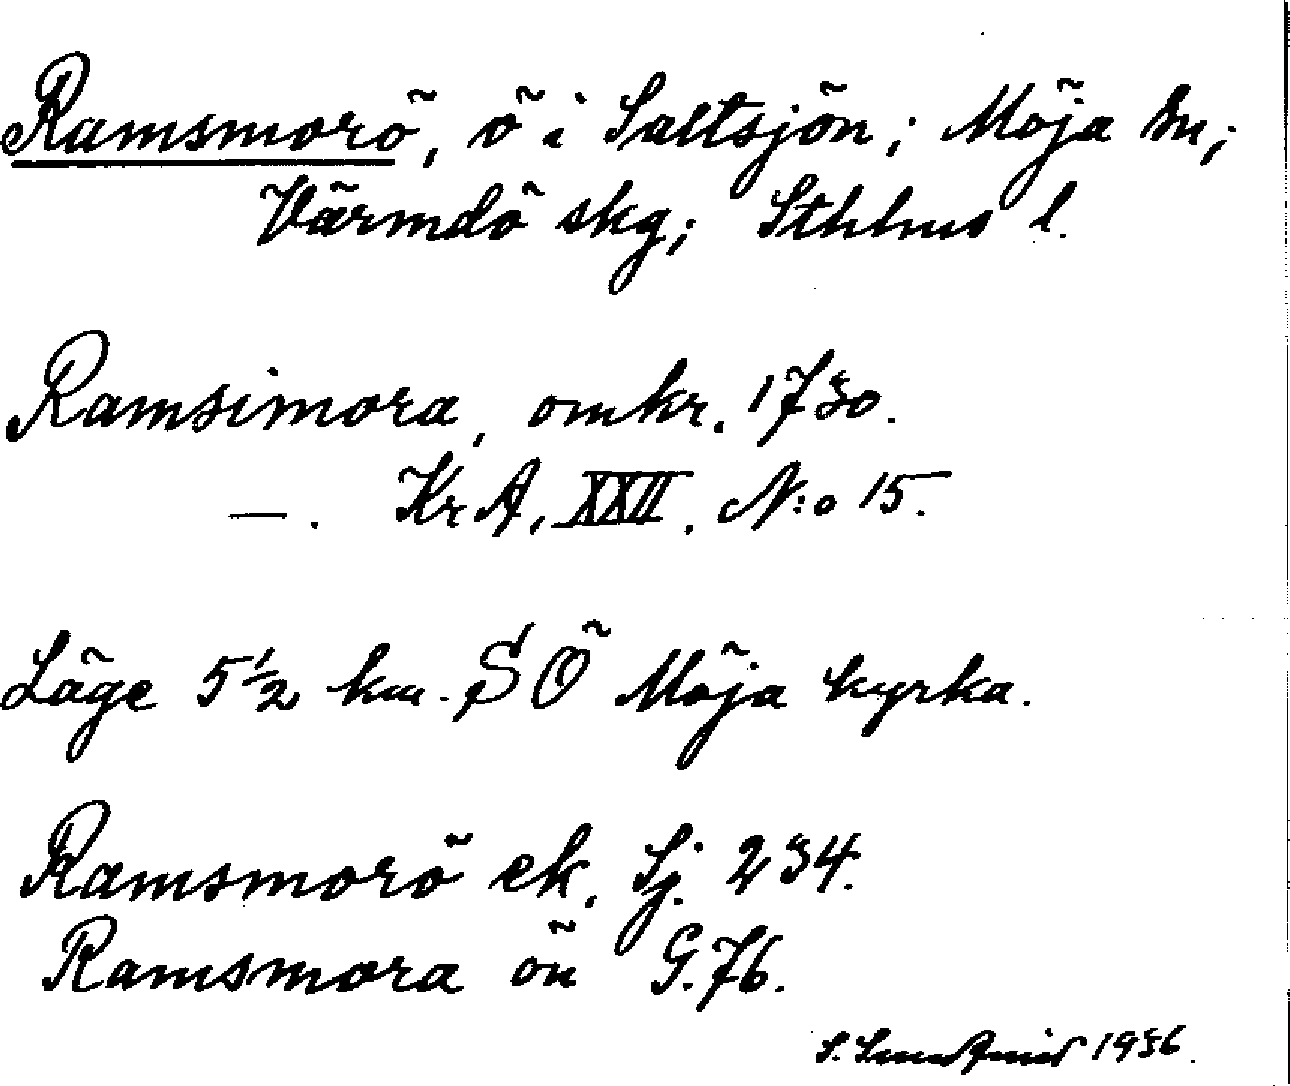 Ramsmorö, ö i Saltsjön; Möja sn;
Värmdö skg; Sthlms l.
Ramsimora, omkr. 1730.
—. KrA, XXII. N:o 15.
Läge 5 1/2 km. SÖ Möja kyrka.
Ramsmorö ek. Sj. 234.
Ramsmora ön G.76.
S. 1936.